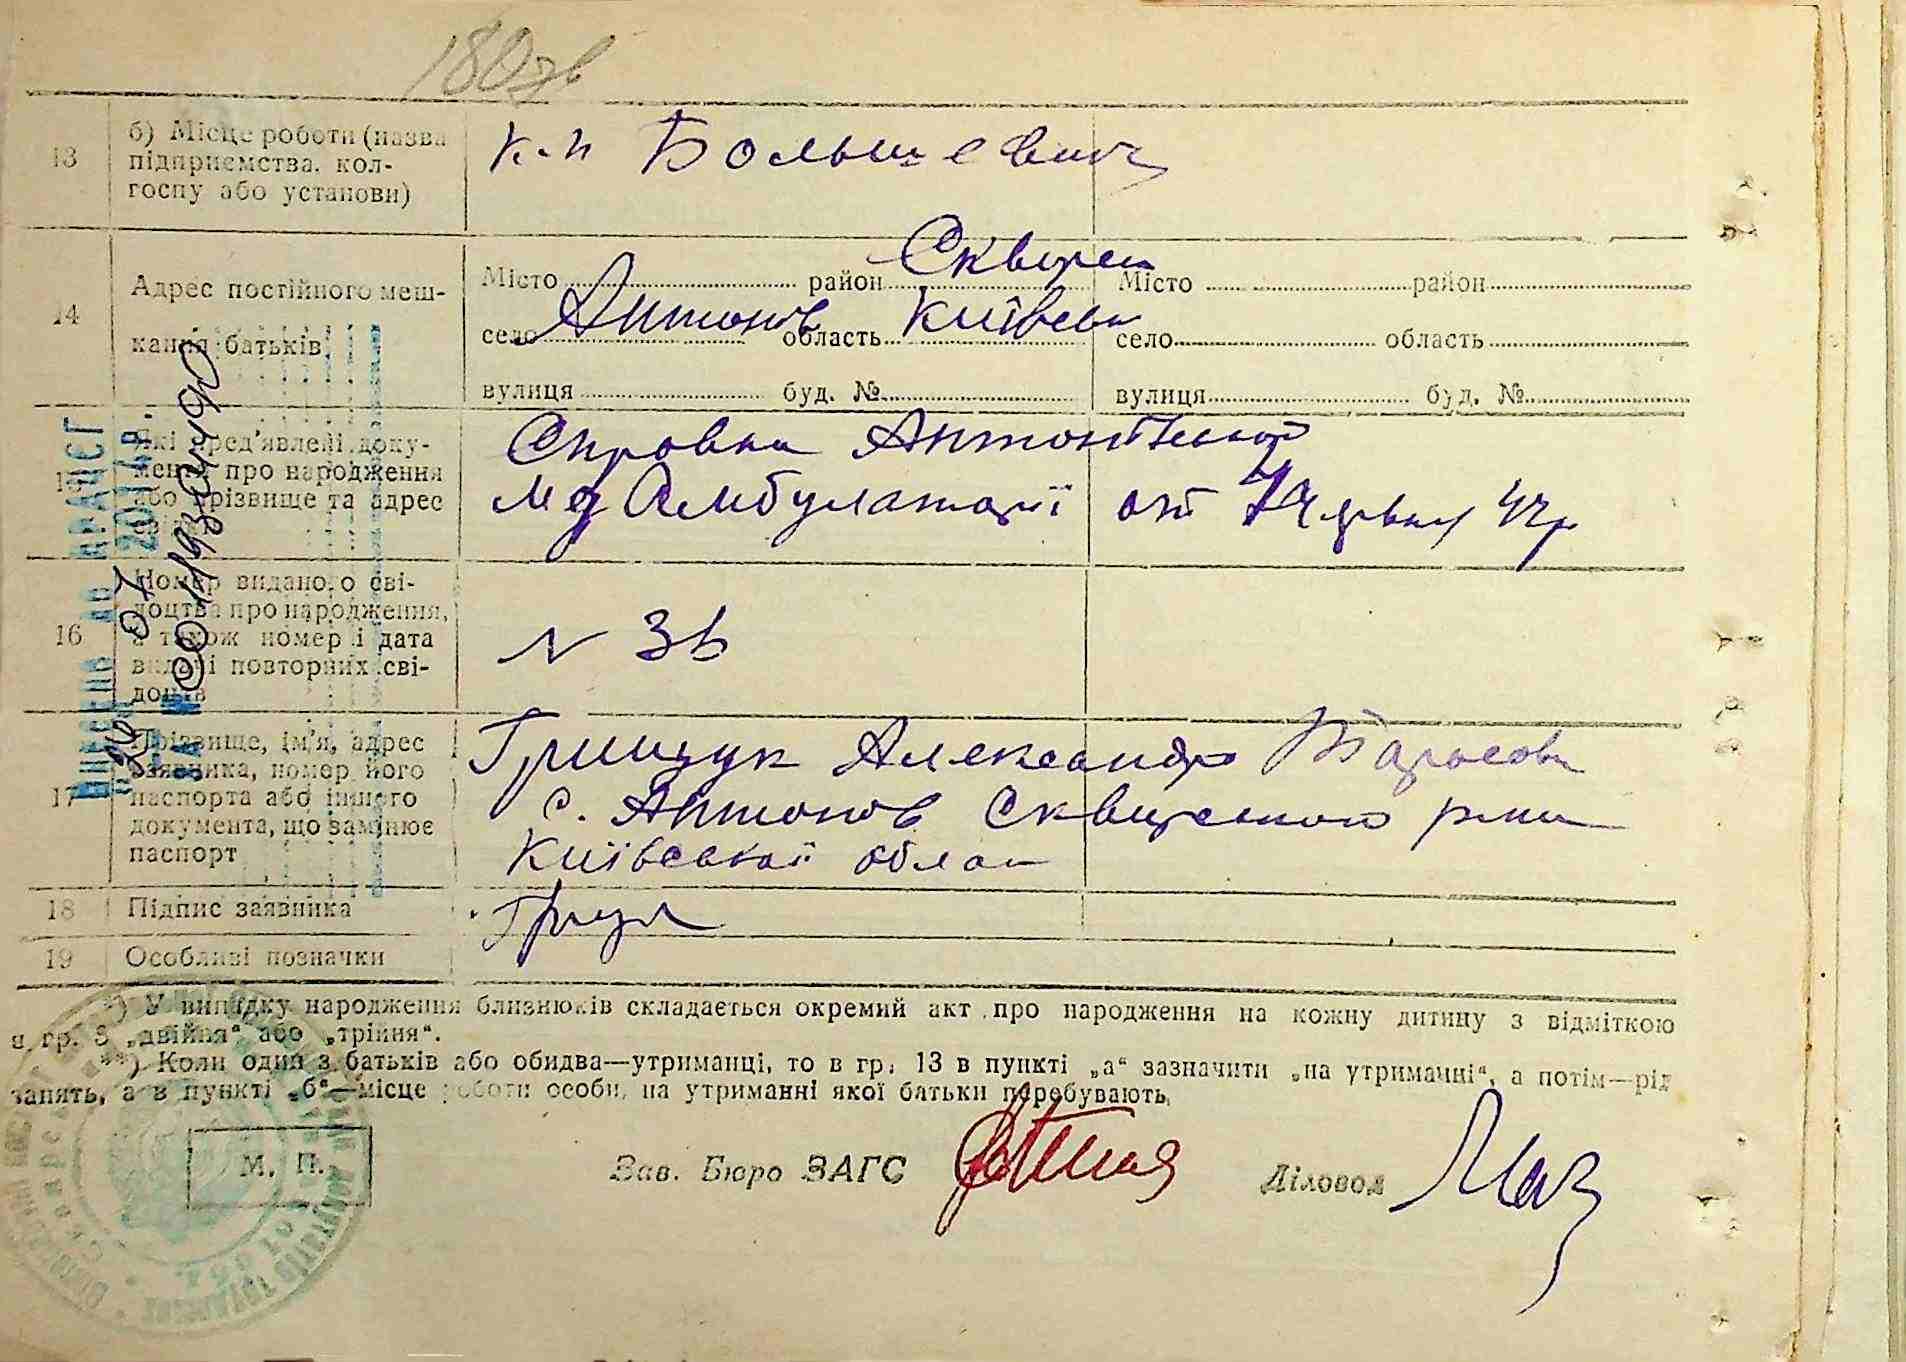 180 зв
13 б) Місце роботи (назва
підприємства, кол-
госпу або установи)
к-п Большевик
14 Адрес постійного меш-
кання батьків
Місто район Сквирсь Місто район
село Антонов область Київськ село область
вулиця буд. № вулиця буд. №
15 Які пред'явлені доку-
менти про народження
або прізвище та адрес
Справка Антонівської
Амбулаторії от 44р
16 Номер виданого сві-
доцтва про народження,
а також номер і дата
видачі повторних сві-
доцтв
N 36
17 Прізвище, ім'я, адрес
заявника, номер його
паспорта або іншого
документа, що замінює
паспорт
Грищук Александр Тарасови
с. Антонов Сквирського
Київської облас
18 Підпис заявника
19 Особливі позначки
ВНЕСЕНО ДО ДРАЦСГ
*) У випадку народження близнюків складається окремий акт про народження на кожну дитину з відміткою
в гр. 8 „двійня“ або „трійня“.
**) Коли один з батьків або обидва—утриманці, то в гр. 13 в пункті „а“ зазначити „на утриманні“, а потім—рід
занять, а в пункті „б“—місце роботи особи, на утриманні якої батьки перебувають.
М. П.
Зав. Бюро ЗАГС Діловод